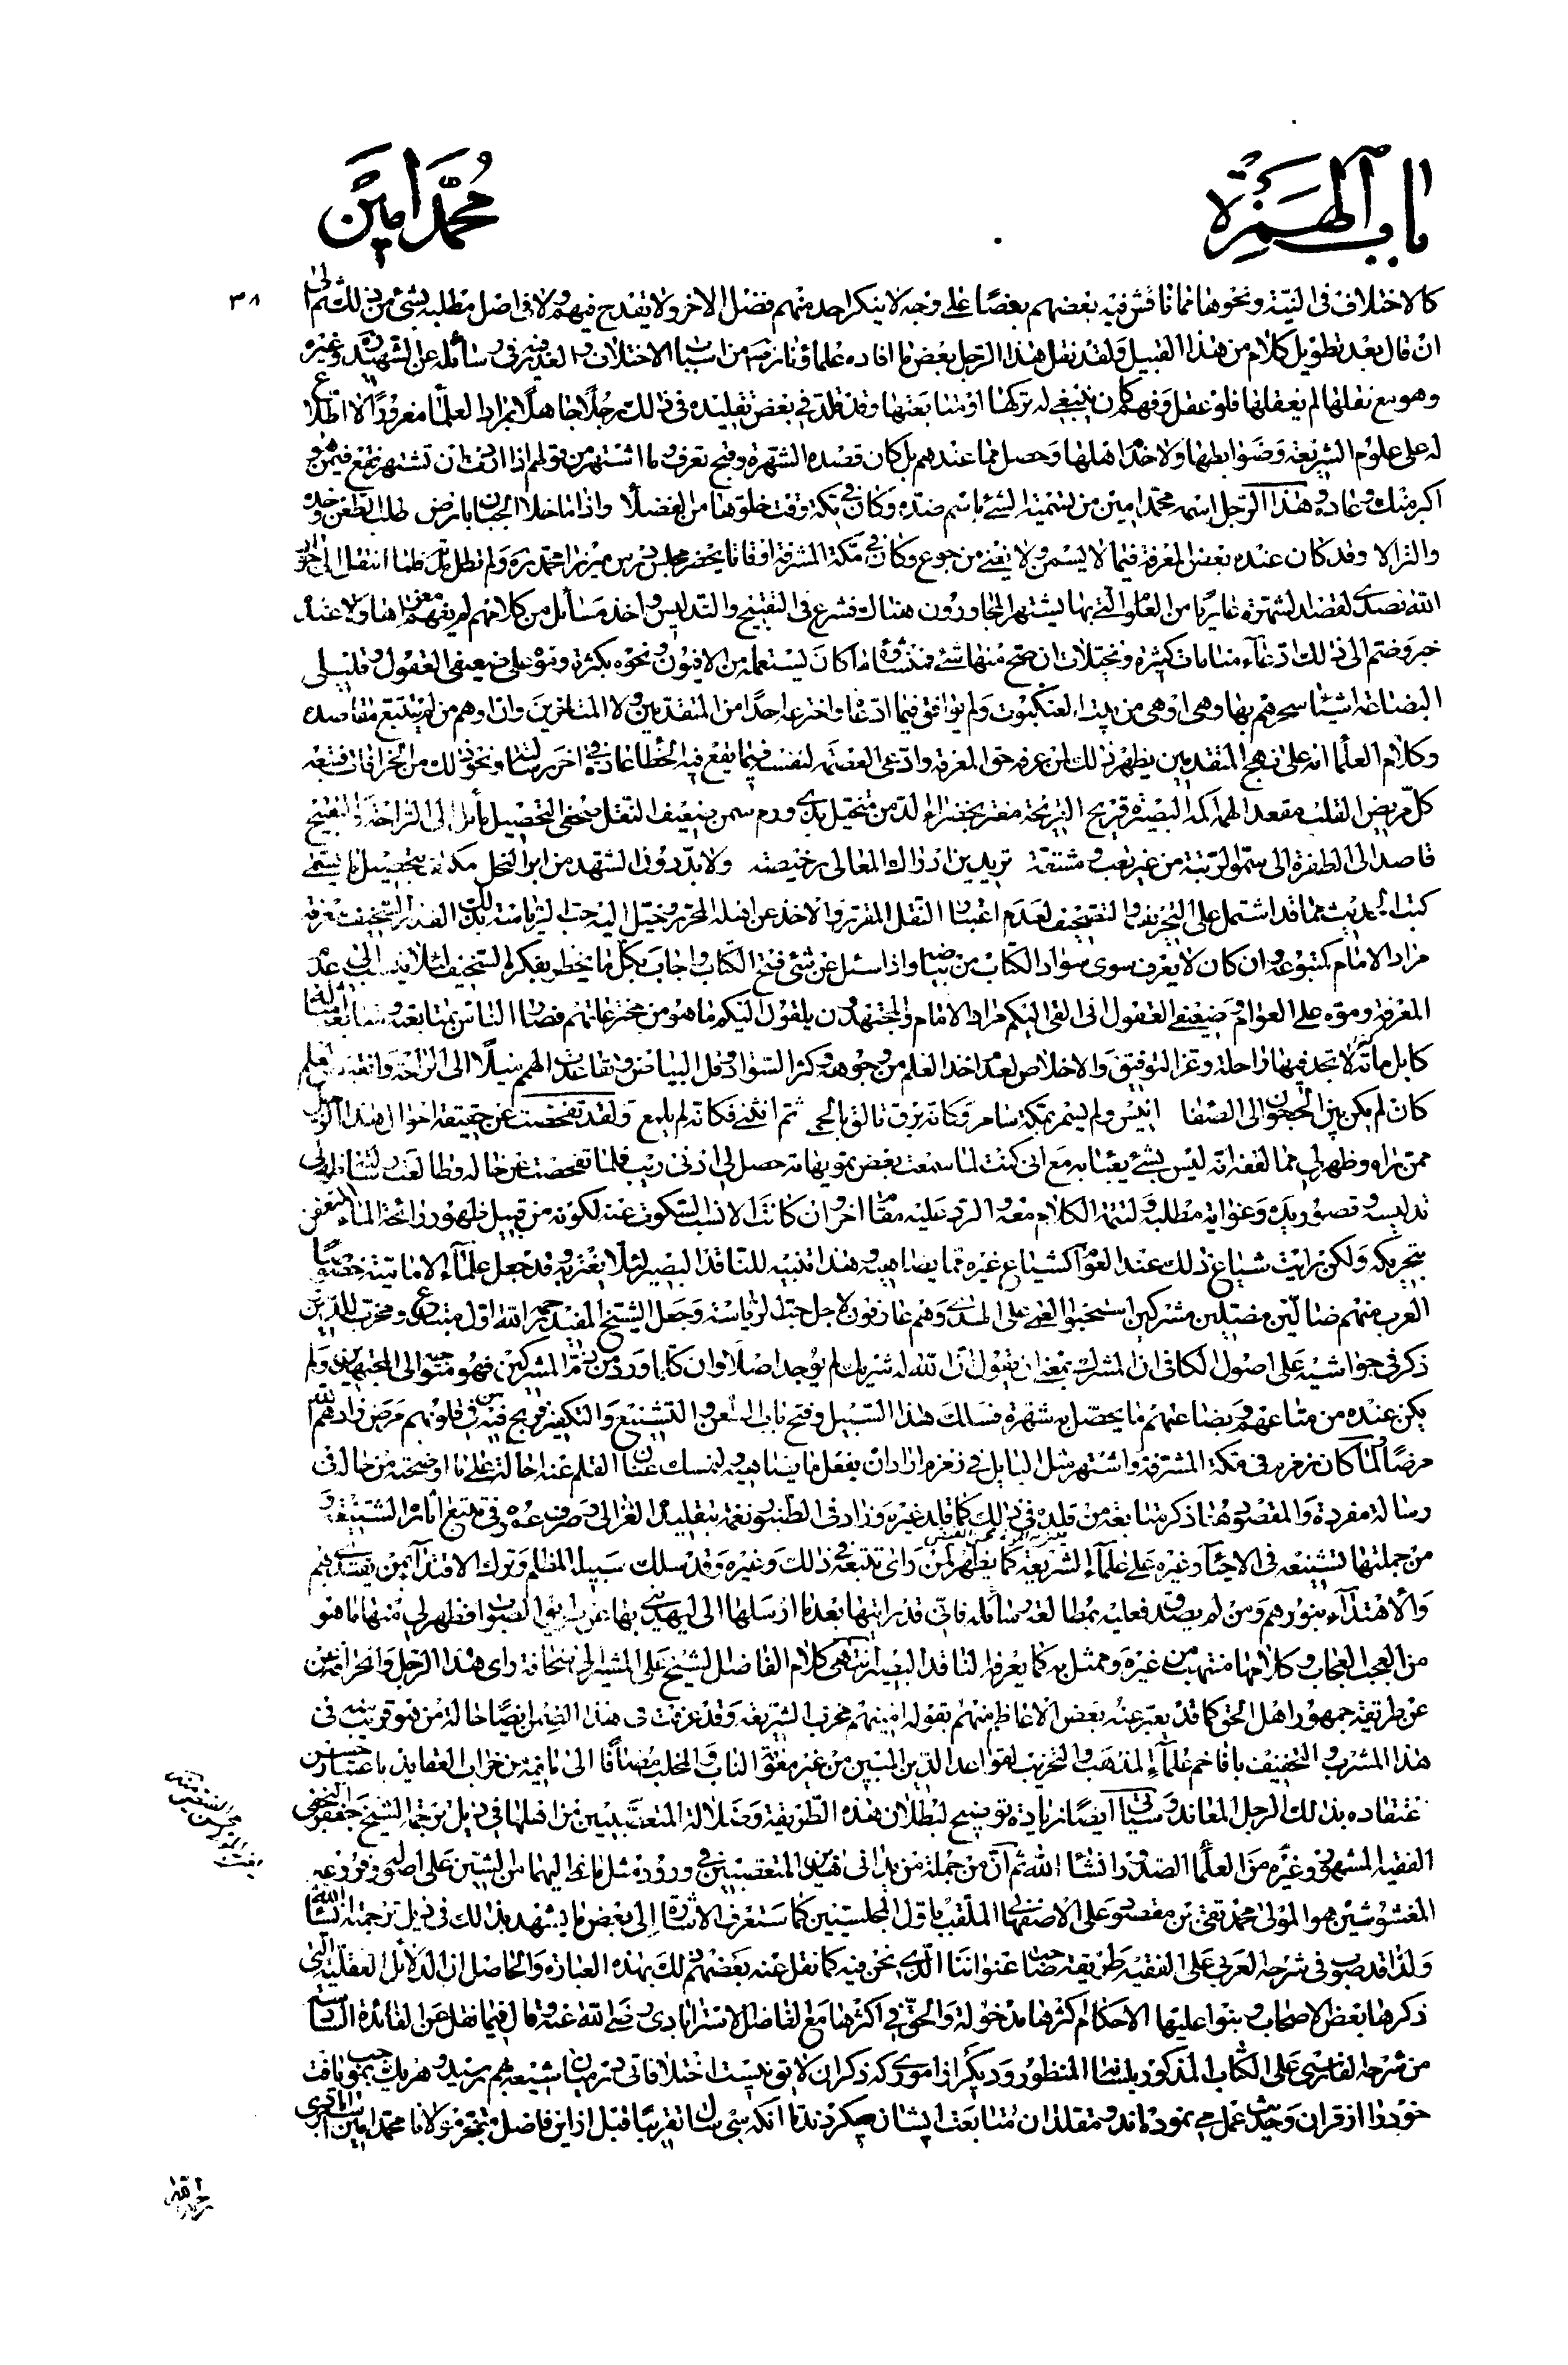 باب الهمزة
محمد امين
٣٨
كالاختلاف فى النيّة ونحوها مما ناقش فيه بعضهم بعضًا على وجه لا ينكر احد منهم فضل الاخر ولا يقدح فيه ولا فى اصل مطلبه بشئ من ذلك ثم الى
ان قال بعد تطويل كلام من هذا القبيل ولقد نقل هذا الرجل بعض ما افاده علماؤنا من اسباب الاختلاف والعذر فيه فى رسائله عن الشهيد وغيره
وهو مع نقلها لم يعقلها فلو عقل وفهم كان ينبغى له تركها او متابعتها وقد قلد فى بعض تقليده فى ذلك رجلًا جاهلًا بمراد العلما مغرورًا لا اطلاع
له على علوم الشريعة وضوابطها ولا خدم اهلها وحصل مما عندهم بل كان قصده الشهرة وفتح تعرف وما اشتهر من قولهم اذا اردت ان تشتهر فقع فيمن هو
اكبر منك وعاده وهذا الرجل اسمه محمد امين من تسمية الشئ باسم ضده وكان فى مكة وقت خلوها من الفضلا واذا ما خلا الجبان بارض طلب الطعن وحده
والنزالا وقد كان عنده بعض المعرفة فيما لا يسمن ولا يغنى من جوع وكان فى مكة المشرفة اتفاقا يحضر مجلس درس ميرزا محمد ره ولم تطل فلما انتقل الى جوار
الله تصدى لقصد الشهرة عاريًا من العلوم التى بها يشتهر المجاورون هناك فشرع فى التقبيح والتدليس واخذ مسائل من كلامهم لم يفهم معناها ولا عنده
خبر وضم الى ذلك ادعاء منامات كثيرة وتخيلات ان صح منها شئ فمنشأه ما كان يستعمله من الافيون ونحوه بكثرة وموّه على ضعيفى العقول وقليلى
البضاعة اشياء سحرهم بها وهى اوهى من بيت العنكبوت ولم يوافق فيما ادعاه واخترعه احدًا من المتقدمين ولا المتاخرين وان اوهم من لم يتتبع مقاصده
وكلام العلما انه على نهج المتقدمين يظهر ذلك لمن عرفه حق المعرفة وادعى العصمة لنفسه فيما يقع فيه الخطا عادة فى اخر رسالته ونحو ذلك من الخرافات فتبعه
كل مريض القلب مقعد الهمة اكمه البصيرة قريح القريحة مغتر بخضراء الدمن متخيل بذى ورم سمن ضعيف التعقل سخيف التحصيل مائل الى الراحة والتقبيح
قاصدا الى الطفرة الى سمو الرتبة من غير تعب ومشقة تريدين ادراك المعالى رخيصة ولا بد دون الشهد من ابر النحل مكتف بتحصيل ما يستمى
كتب الحديث مما قد اشتمل على التحريف والتصحيف لعدم اعتبار النقل المقرر والاخذ عن اهله المحرر وخيّل اليه حب الرياسة بذلك الفهم السخيف معرفة
مراد الامام كمتبوعه وان كان لا يعرف سوى سواد الكتاب من بياضه واذا سئل عن شئ فتح الكتاب واجاب بكل ما يخطر بفكره السخيف لئلا ينسب الى عدم
المعرفة وموه على العوام وضعيفى العقول انى القى اليكم مراد الامام والمجتهدون يلقون اليكم ما هو من مخترعاتهم فصار الناس بمتابعته ومتابعة امثاله
كابل مائة لا تجد فيها راحلة وعز التوفيق والاخلاص لعدم اخذ العلم من وجوهه وكثر السواد وقل البياض وتقاعدت الهمم ميلًا الى الراحة وانقبض العلم
كان لم يكن بين الحجون الى الصفا انيس ولم يسمر بمكة سامر وكانه برق تالق بالحمى ثم انثنى فكانه لم يلمع ولقد تفحصت عن حقيقة احوال هذا الرجل
ممن راه وظهر لى مما لفقه انه ليس بشئ يعبأ به مع انى كنت لما سمعت بعض تمويهاته حصل لى ادنى ريب فلما تفحصت عن حاله وطالعت رسالته ظهر لى
تدليسه وقصور يده وغواية مطلبه ولتتمة الكلام معه والرد عليه مقام اخر وان كانت الانسب السكوت عنه لكونه من قبيل ظهور رائحة الماء المتعفن
بتحريكه ولكن رايت شياع ذلك عند العوام كشياع غيره مما يضاهيه وهذا تنبيه للناقد البصير لئلا يغتر به وقد جعل علماء الامامية خصوصًا
العرب منهم ضالين مضلين مشركين استحبوا العمى على الهدى وهم عارفون لاجل حب الرياسة وجعل الشيخ المفيد رحمه الله اول مبتدع ومخرب للدين
ذكر فى حواشيه على اصول الكافى ان المشرك بمعنى ان يقول ان لله شريك لم يوجد اصلا وان كلما ورد من ذم المشركين فهو متوجه الى المجتهدين ولم
يكن عنده من متاعهم وبضاعتهم ما يحصل به شهرة فسلك هذا السبيل وفتح باب الطعن والتشنيع والتكفير فربح فيه من فى قلوبهم مرض فزادهم الله
مرضًا ولما كان زمزم فى مكة المشرفة واشتهر مثل البايل فى زمزم اراد ان يفعل ما يضاهيه وليمسك عنان القلم عنه احالة على ما اوضحته من حاله فى
رسالة مفردة والمقصود هنا ذكر متابعة من قلده فى ذلك كما قلد غيره وزاد فى الطنبور نغمة بتقليد الغزالى وصرف عمره فى تتبع اثاره الشنيعة و
من جملتها تشنيعه فى الاحياء وغيره على علماء الشريعة كما يظهر لمن راى تتبعه فى ذلك وغيره وقد سلك سبيله المظلم وترك الاقتداء بمن يقتدى بهم
والاهتداء بنورهم ومن لم يصدق فعليه بمطالعة رسائله فانى قد رايتها بعد ما ارسلها الى ليهدينى بها عن طريق الصواب فظهر لى منها ما هو
من العجب العجاب وكلامها منتهب من غيره وممثل به كما يعرفه الناقد البصير انتهى كلام الفاضل الشيخ على المشير الى سخافة راى هذا الرجل وانحرافه عن
عن طريقة جمهور اهل الحق كما قد يعبر عنه بعض الاعاظم منهم بقوله امينهم مخرب الشريعة وقد عرفت فى هذا الضمن ايضًا حالة من هو قريب منه فى
هذا المشرب والتخفيف بافاخم علماء المذهب والتخريب لقواعد الدين المبين من غير معتوق الناب والمخلب مضافًا الى ما فيه من خراب العقايد باعتبار حسن
اعتقاده بذلك الرجل المعاند وسياتى ايضا زيادة توضيح لبطلان هذه الطريقة وضلالة المتعصبين من اهلها فى ذيل ترجمة الشيخ جعفر النجفى
الفقيه المشهور وغيره من العلما الصدور انشاء الله ثم ان من جملة من بدا فى هذين المتعصبين فى ورود مثل ما نما اليهما من الشين على اصليه وفروعه
المغشوشين هو المولى محمد تقى بن مقصود على الاصفهانى الملقب باول المجلسيين كما ستعرف الاشارة الى بعض ما يشهد بذلك فى ذيل ترجمته انشاء الله
ولذا قد صوب فى شرحه العربى على الفقيه طريقة صاحب عنواننا الذى نحن فيه كما نقل عنه بعضهم ذلك بهذه العبارة والحاصل ان الدلائل العقلية التى
ذكرها بعض الاصحاب وبنوا عليها الاحكام اكثرها مدخولة والحق فى اكثرها مع الفاضل الاسترابادى رضى الله عنه وقال فيما نقل عن الفائدة السادسة
من شرحه الفارسى على الكتاب المذكور بلسانه المنظور وديگر از امورى كه ذكر ان لايق نيست اختلافاتى در ميان شيعه بهم رسيد وهر يك بموجب يافت
خود را از قران وحديث عمل مى نموده اند ومقلدان متابعت ايشان ميكردند تا انكه سى سال تقريبًا قبل از اين فاضل متبحر مولانا محمد امين استرابادى